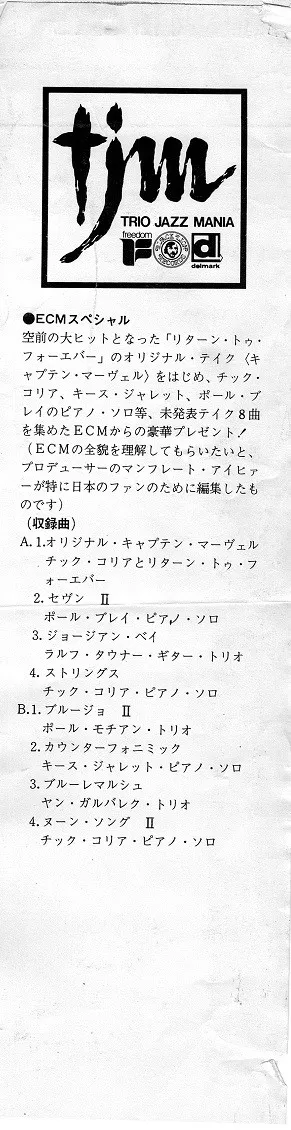 tjm
TRIO JAZZ MANIA
freedom
F
d
delmark
●ECMスペシャル
空前の大ヒットとなった「リターン・トゥ・
フォーエバー」のオリジナル・テイク〈キ
ャプテン・マーヴェル〉をはじめ、チック・
コリア、キース・ジャレット、ポール・ブ
レイのピアノ・ソロ等、未発表テイク8曲
を集めたECMからの豪華プレゼント!
(ECMの全貌を理解してもらいたいと、
プロデューサーのマンフレート・アイヒァ
ーが特に日本のファンのために編集したも
のです)
(収録曲)
A.1.オリジナル・キャプテン・マーヴェル
チック・コリアとリターン・トゥ・フ
ォーエバー
2.セヴン Ⅱ
ポール・ブレイ・ピアノ・ソロ
3.ジョージアン・ベイ
ラルフ・タウナー・ギター・トリオ
4.ストリングス
チック・コリア・ピアノ・ソロ
B.1.ブルージョ Ⅱ
ポール・モチアン・トリオ
2.カウンターフォニミック
キース・ジャレット・ピアノ・ソロ
3.ブルーレマルシュ
ヤン・ガルバレク・トリオ
4.ヌーン・ソング Ⅱ
チック・コリア・ピアノ・ソロ